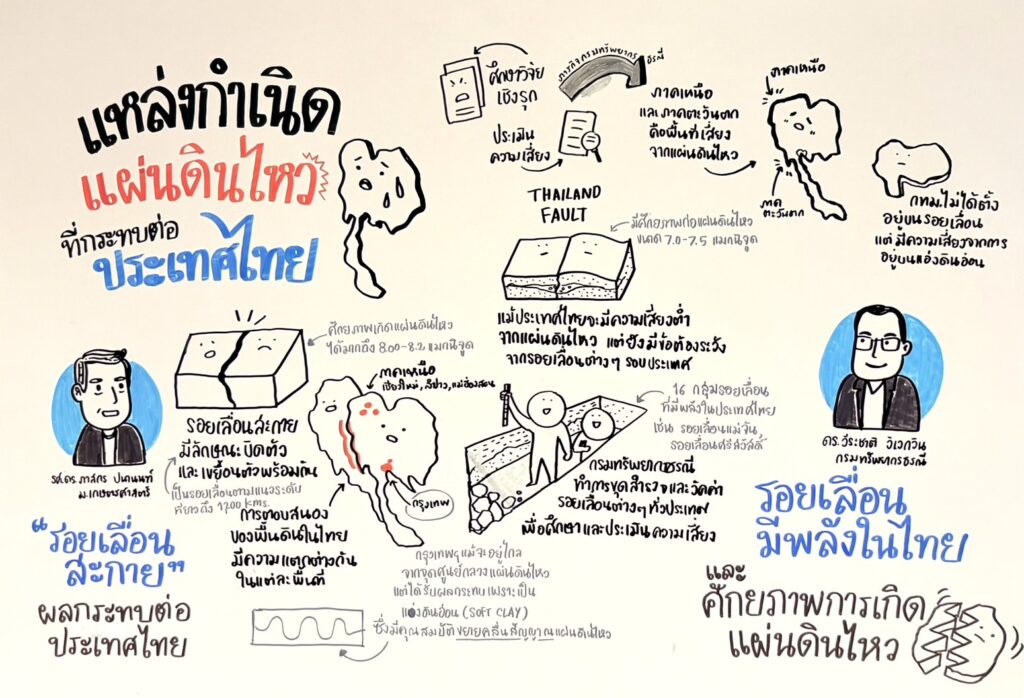 แหล่งกำเนิด
แผ่นดินไหว
ที่กระทบต่อ
ประเทศไทย
ศึกษาวิจัย
เชิงรุก
ประเมิน
ความเสี่ยง
ภารกิจกรมทรัพยากรธรณี
ภาคเหนือ
และภาคตะวันตก
คือพื้นที่เสี่ยง
จากแผ่นดินไหว
ภาคเหนือ
ภาค
ตะวันตก
กทม. ไม่ได้ตั้ง
อยู่บนรอยเลื่อน
แต่มีความเสี่ยงจากการ
อยู่บนแอ่งดินอ่อน
THAILAND
FAULT
มีศักยภาพก่อแผ่นดินไหว
ขนาด 7.0-7.5 แมกนิจูด
แม้ประเทศไทยจะมีความเสี่ยงต่ำ
จากแผ่นดินไหว แต่ยังมีข้อต้องระวัง
จากรอยเลื่อนต่างๆ รอบประเทศ
16 กลุ่มรอยเลื่อน
ที่มีพลังในประเทศไทย
เช่น รอยเลื่อนแม่จัน,
รอยเลื่อนศรีสวัสดิ์
กรมทรัพยากรธรณี
ทำการขุดสำรวจและวัดค่า
รอยเลื่อนต่างๆ ทั่วประเทศ
เพื่อศึกษาและประเมินความเสี่ยง
ดร.วีระชาติ วิเวกวิน
กรมทรัพยากรธรณี
รอยเลื่อน
มีพลังในไทย
และ
ศักยภาพการเกิด
แผ่นดินไหว
ศักยภาพเกิดแผ่นดินไหว
ได้มากถึง 8.00-8.2 แมกนิจูด
รอยเลื่อนสะกาย
มีลักษณะบิดตัว
และเขยื้อนตัวพร้อมกัน
เป็นรอยเลื่อนตามแนวระดับ
ที่ยาวถึง 1,200 kms.
รศ.ดร.ภาสกร ปนานนท์
ม.เกษตรศาสตร์
"รอยเลื่อน
สะกาย"
ผลกระทบต่อ
ประเทศไทย
ภาคเหนือ
เชียงใหม่, ลำปาง, แม่ฮ่องสอน
กรุงเทพ
การตอบสนอง
ของพื้นดินในไทย
มีความแตกต่างกัน
ในแต่ละพื้นที่
กรุงเทพฯ แม้จะอยู่ไกล
จากจุดศูนย์กลางแผ่นดินไหว
แต่ได้รับผลกระทบเพราะเป็น
แอ่งดินอ่อน (SOFT CLAY)
ซึ่งมีคุณสมบัติขยายคลื่นสัญญาณแผ่นดินไหว